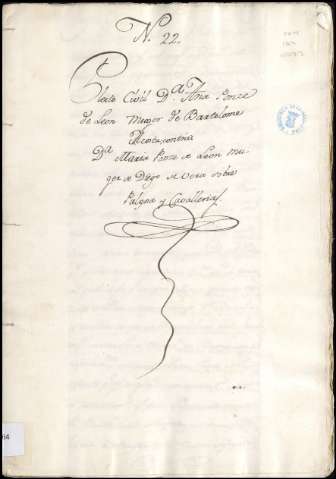 N. 22.
Pleito Civil D.ª Ana Ponze
de Leon Muger de Bartolome
contra
D.ª Maria Ponze de Leon mu-
ger de Diego de Vera sobre
y Cavalleria